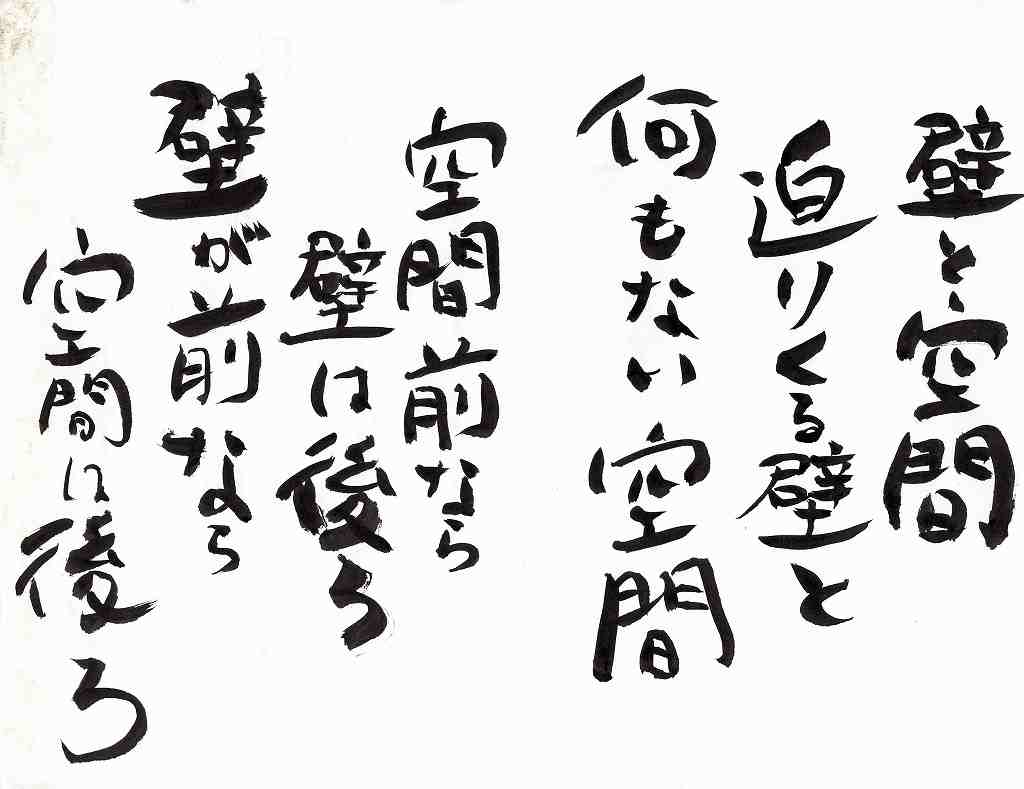 壁と空間
迫りくる壁と
何もない空間
空間前なら
壁は後ろ
壁が前なら
空間は後ろ